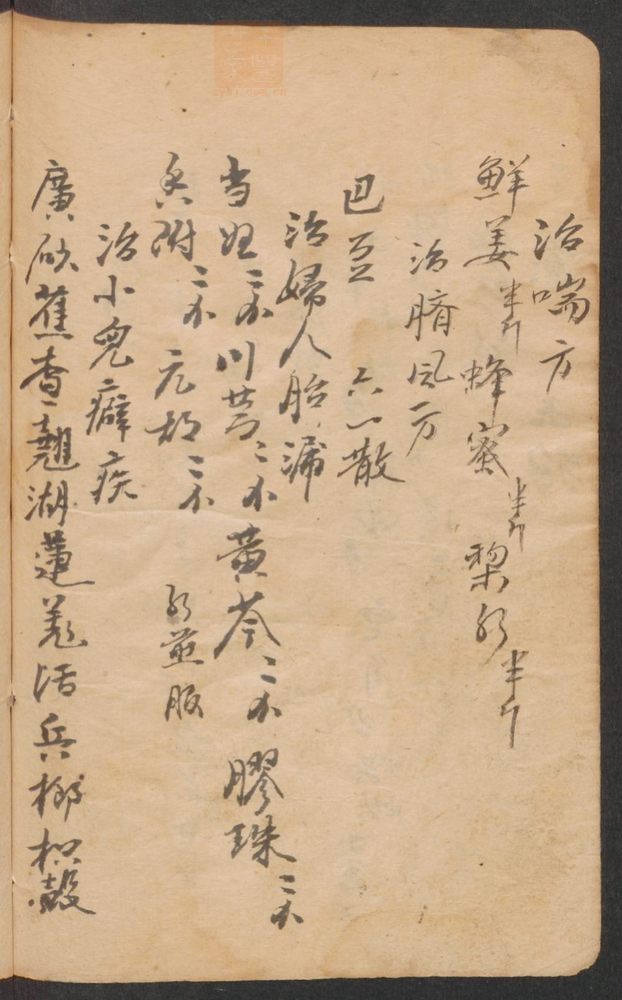 治喘方
鮮姜半斤 蜂蜜半斤 梨水半斤
治臍风方
巴豆 六一散
治婦人胎漏
当归二不 川芎二不 黄芩二不 膠珠二不
香附二不 元胡二不 水煎服
治小兒癖疾
廣砂蕉查翹湖蓮羗活兵榔枳殼